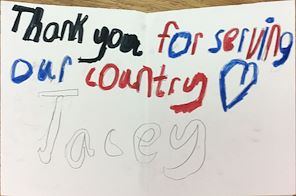 Thank you for serving
our country
Jacey